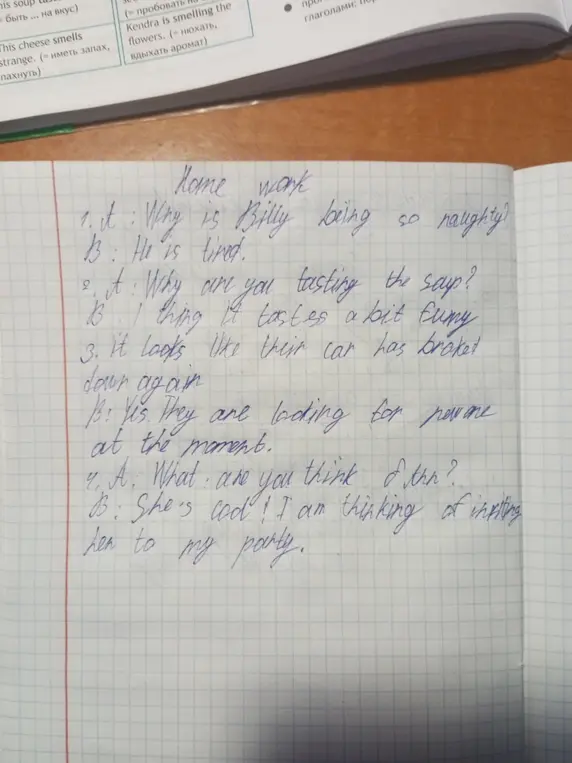 his soup
(= быть ... на вкус)
(= пробовать на
This cheese smells
strange. (= иметь запах,
пахнуть)
Kendra is smelling the
flowers. (= нюхать,
вдыхать аромат)
глаголами:
Home work
1. A: Why is Billy being so naughty?
B: He is tired.
2. A: Why are you tasting the soup?
B I thing it tastes a bit funny
3. it looks like their car has broked
down again
B: Yes. They are looking for
at the moment.
4. A. What are you think of Ann?
B: She's cool! I am thinking of inviting
her to my party.